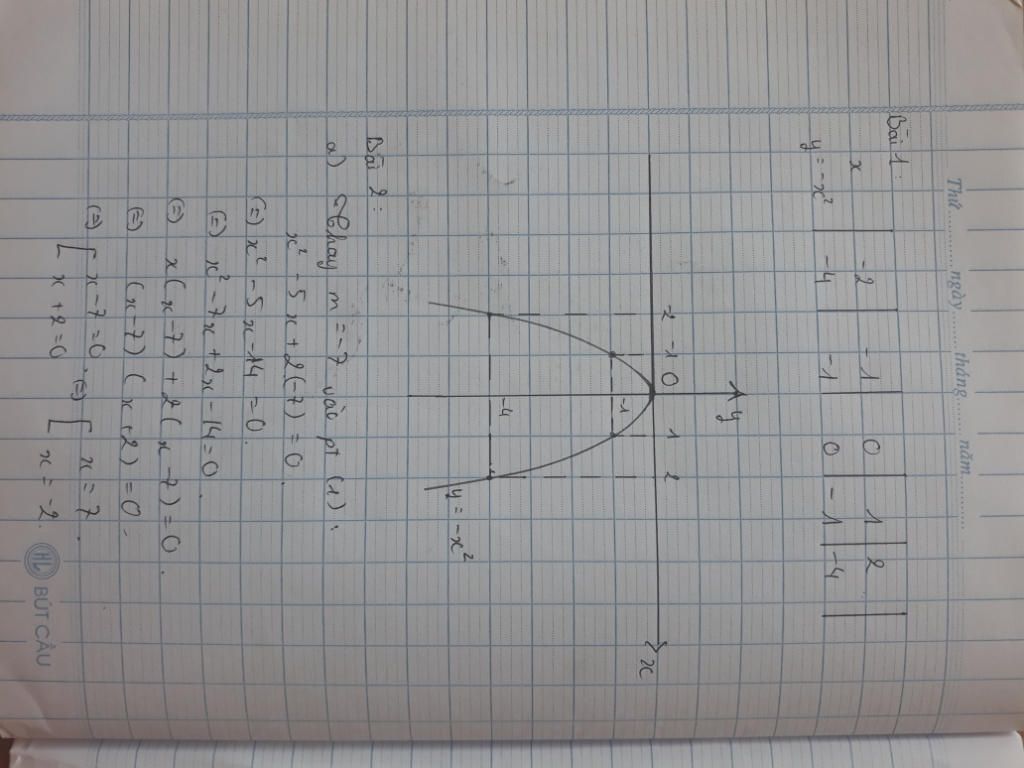 Thứ............ ngày......... tháng............ năm............
Bài 1:
x -2 -1 0 1 2
y = -x² -4 -1 0 -1 -4
y
x
-2 -1 0 1 2
-1
-4
y = -x²
Bài 2:
a) Thay m = -7 vào pt (1):
x² - 5x + 2(-7) = 0.
(=) x² - 5x - 14 = 0.
(=) x² - 7x + 2x - 14 = 0.
(=) x(x - 7) + 2(x - 7) = 0.
(=) (x - 7) (x + 2) = 0.
(=) [ x - 7 = 0 (=) [ x = 7.
x + 2 = 0 x = -2.
HL BÚT CẦU